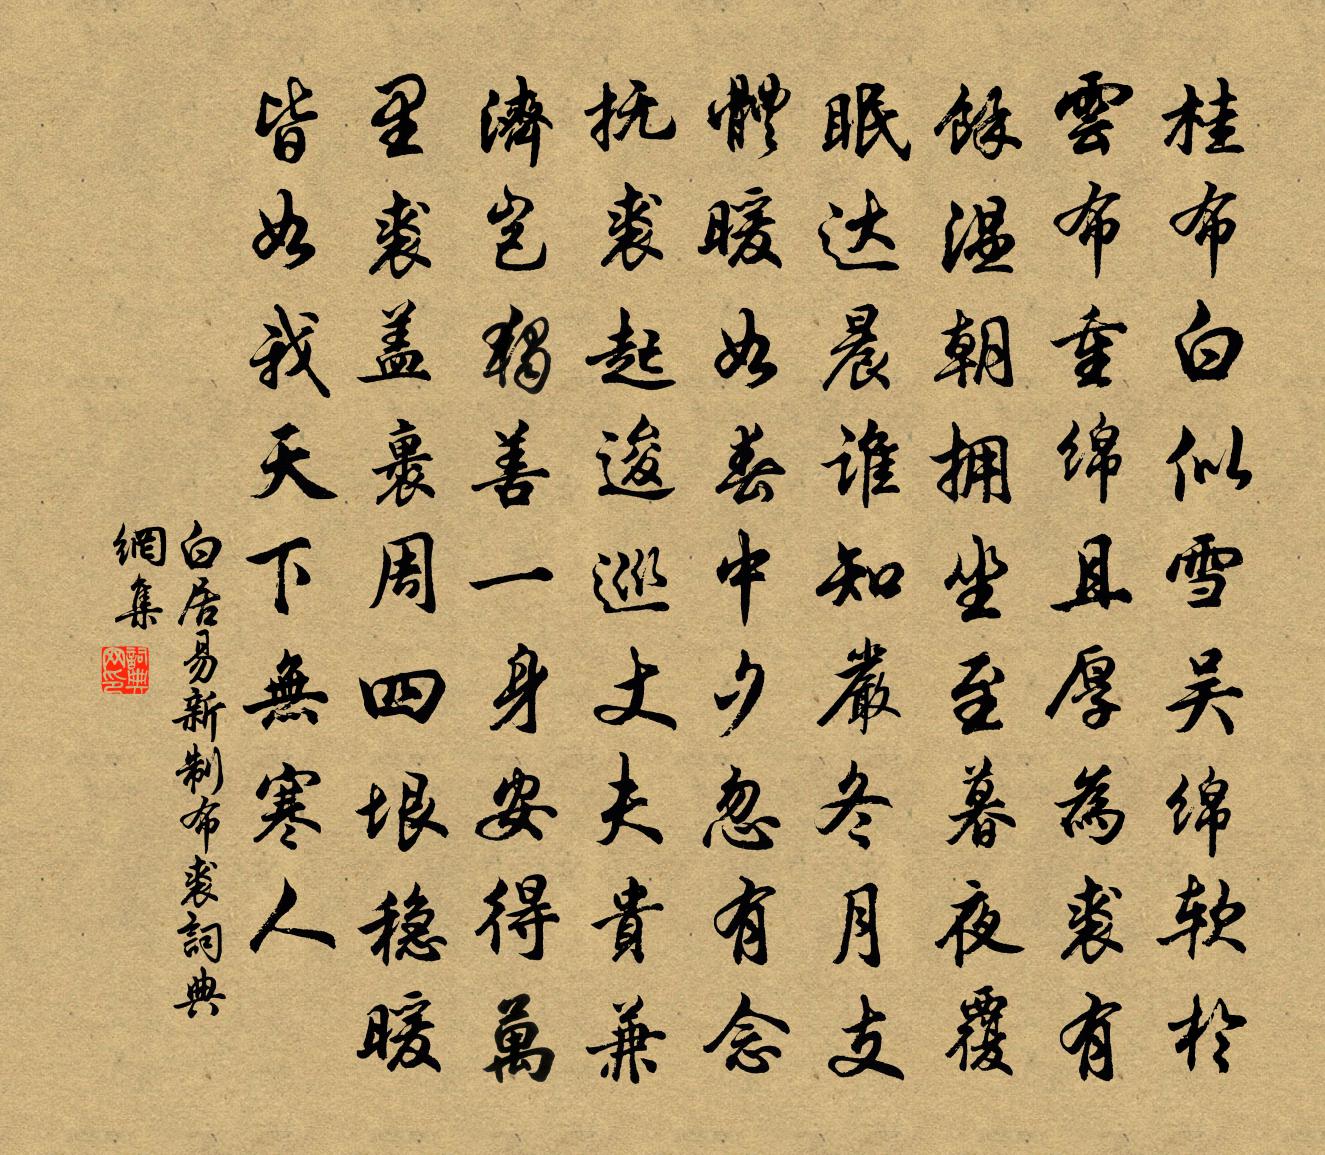 桂布白似雪吴绵软於
雲布重绵且厚為裘有
餘温朝拥坐至暮夜覆
眠达晨谁知嚴冬月支
體暖如春中夕忽有念
抚裘起逡巡丈夫貴兼
濟岂獨善一身安得萬
里裘盖裹周四垠稳暖
皆如我天下無寒人
白居易新制布裘詞典
網集
詞典网印